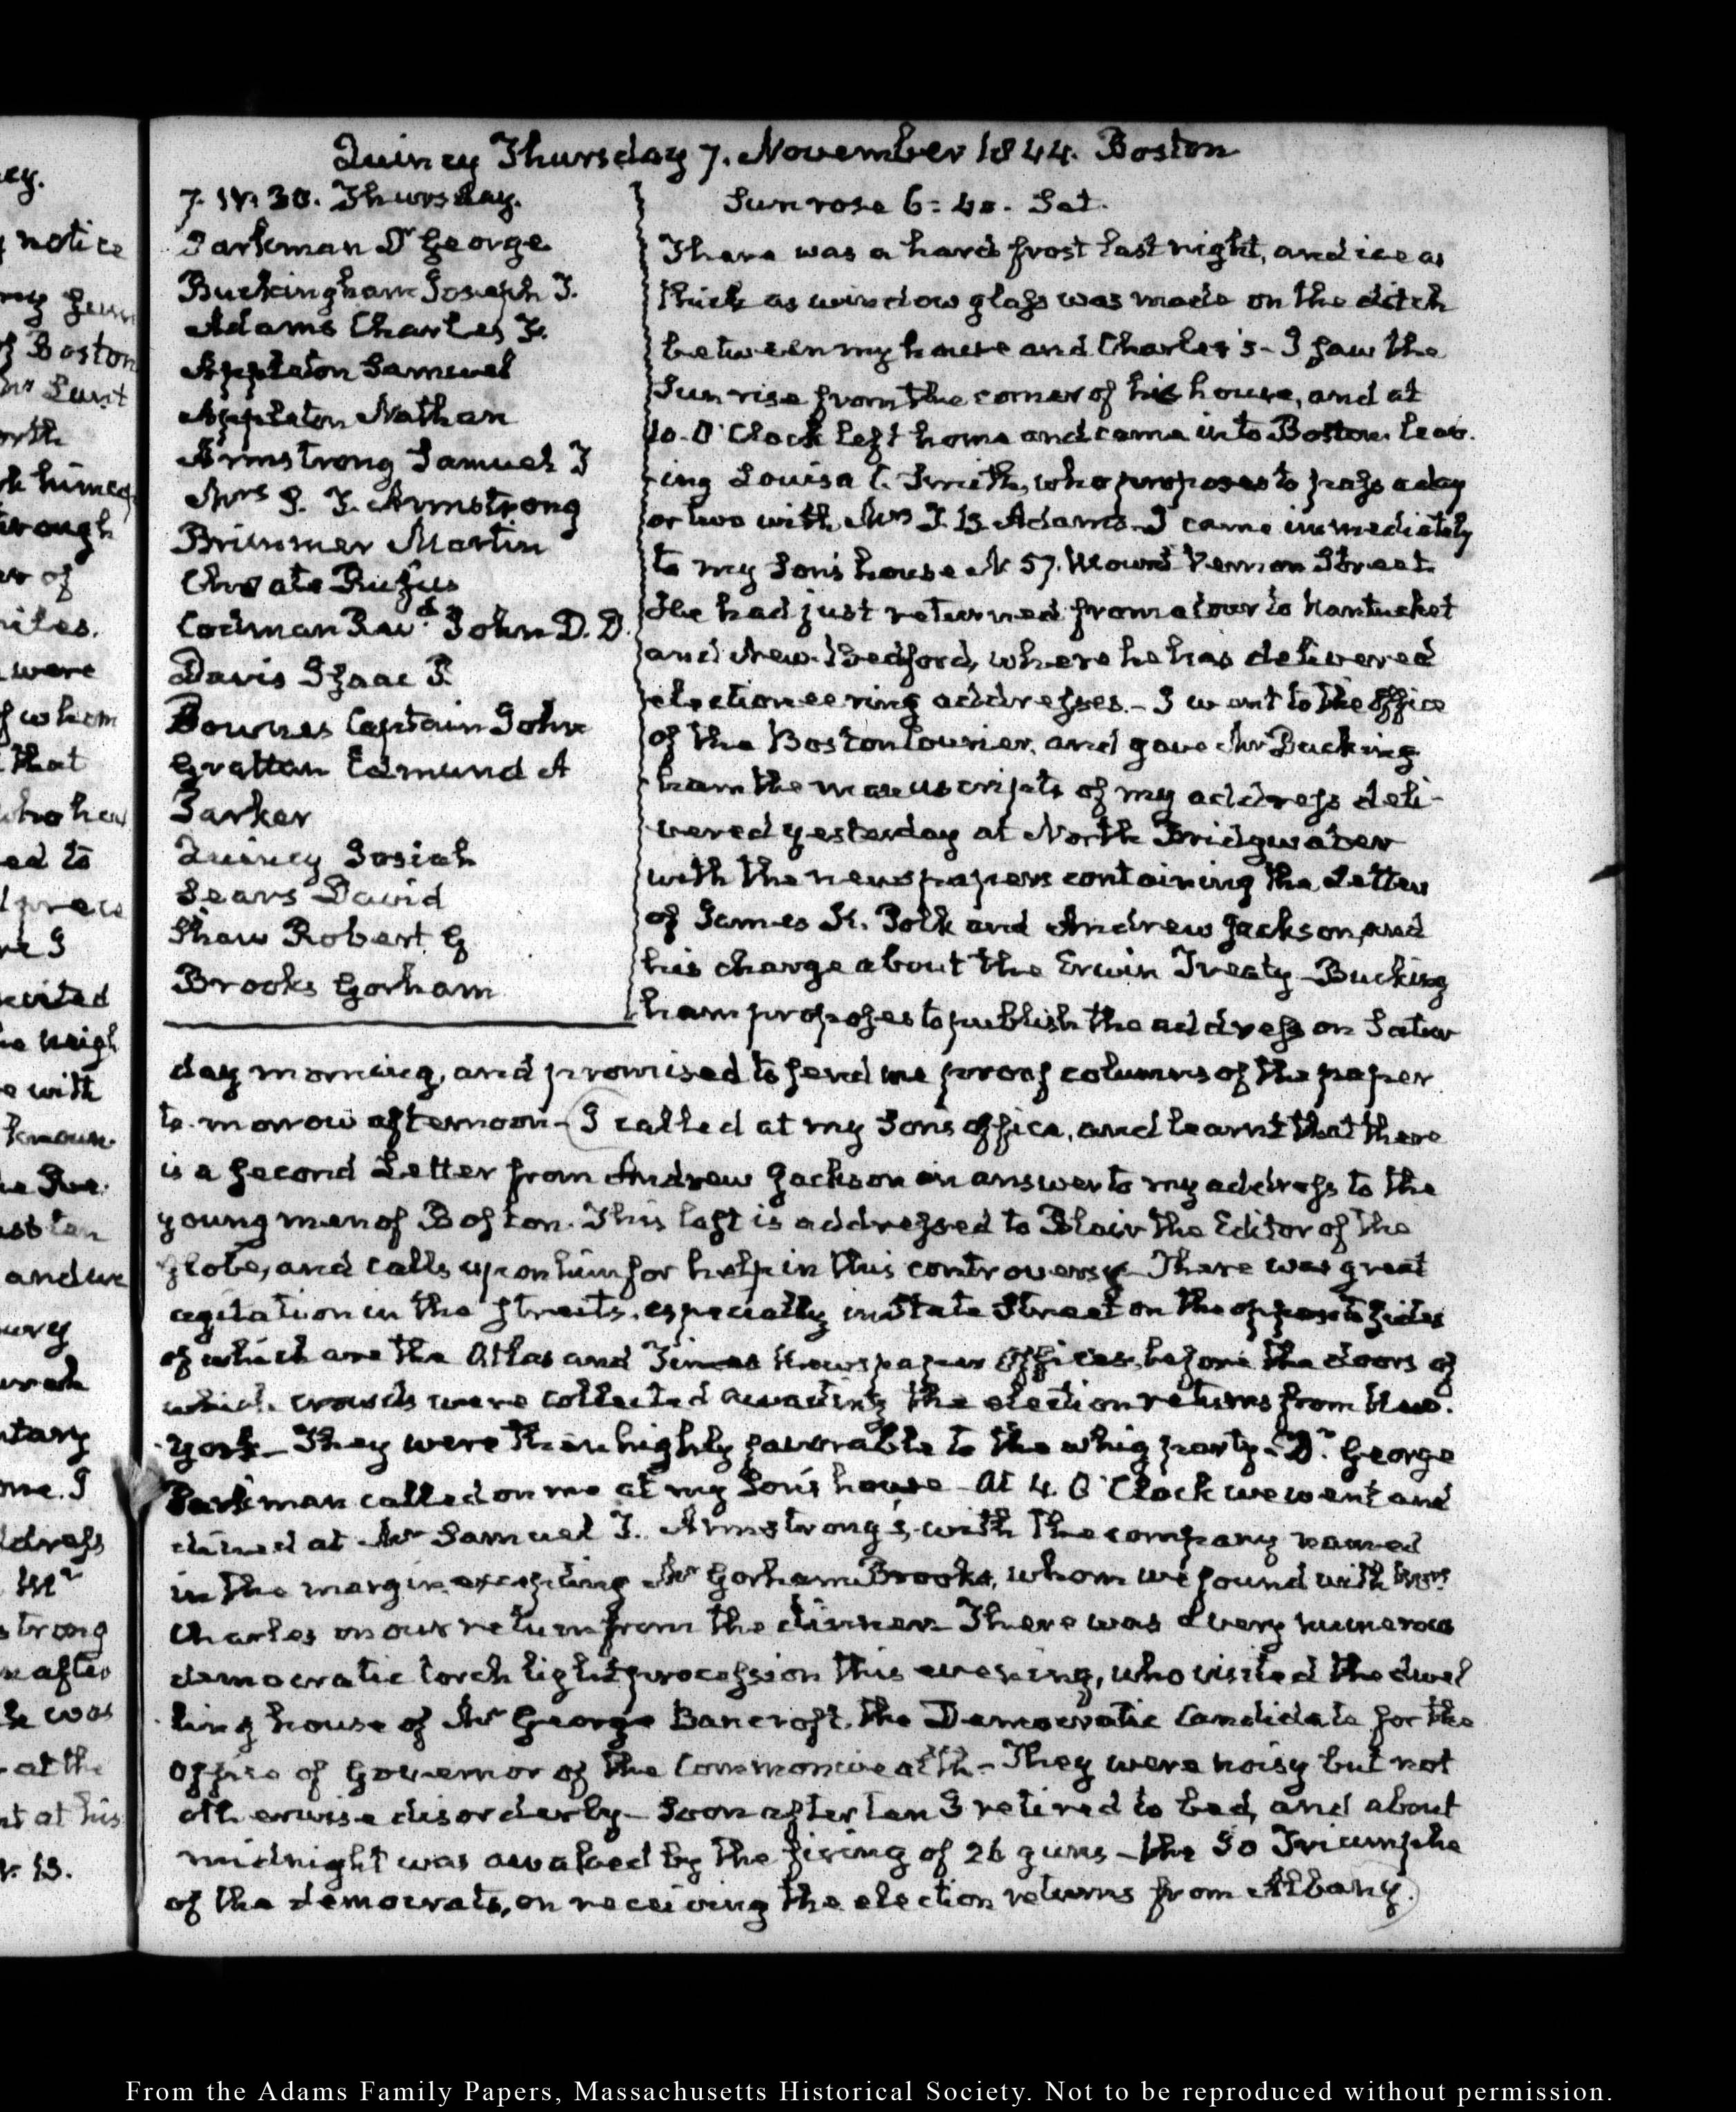 Quincy Thursday 7. November 1844. Boston
7. IV. 30. Thursday.
Parkman Dr George
Buckingham Joseph T.
Adams Charles F.
Appleton Samuel
Appleton Nathan
Armstrong Samuel T
Mrs S. T. Armstrong
Brimmer Martin
Choate Rufus
Codman Revd. John D. D.
Davis Isaac P.
Downes Captain John
Grattan Edmund A
Parker
Quincy Josiah
Sears David
Shaw Robert G
Brooks Gorham
Sun rose 6:40. Set.
There was a hard frost last night, and ice as
thick as window glass was made on the ditch
between my house and Charles's - I saw the
Sun rise from the corner of his house, and at
10. O'Clock left home and came into Boston. leav-
-ing Louisa C. Smith, who proposes to pass a day
or two with Mrs J. B. Adams - I came immediately
to my Son's house N 57. Mount Vernon Street.
He had just returned from a tour to Nantucket
and New-Bedford, where he has delivered
electioneering addresses. - I went to the Office
of the Boston Courier, and gave Mr Bucking
ham the manuscripts of my address deli-
vered yesterday at North Bridgwater
with the newspapers containing the Letters
of James K. Polk and Andrew Jackson, and
his charge about the Erwin Treaty - Bucking
ham proposes to publish the address on Satur
day morning, and promised to send me proof columns of the paper
to-morrow afternoon - I called at my Son's office, and learnt that there
is a second Letter from Andrew Jackson in answer to my address to the
young men of Boston. This last is addressed to Blair the Editor of the
Globe, and calls upon him for help in this controversy - There was great
agitation in the streets, especially in State Street on the opposite sides
of which are the Atlas and Times Newspaper Offices, before the doors of
which crowds were collected awaiting the election returns from New-
York - They were then highly favorable to the whig party - Dr. George
Parkman called on me at my Son's house - At 4. O'Clock we went and
dined at Mr Samuel T. Armstrong's, with the company named
in the margin excepting Mr Gorham Brooks, whom we found with Mrs
Charles on our return from the dinner - There was a very numerous
democratic torch light procession this evening, who visited the dwel
ling house of Mr George Bancroft, the Democratic Candidate for the
Office of Governor of the Commonwealth - They were noisy but not
otherwise disorderly - Soon after ten I retired to bed, and about
midnight was awaked by the firing of 26 guns - the Io Triumphe
of the democrats, on receiving the election returns from Albany.
From the Adams Family Papers, Massachusetts Historical Society. Not to be reproduced without permission.